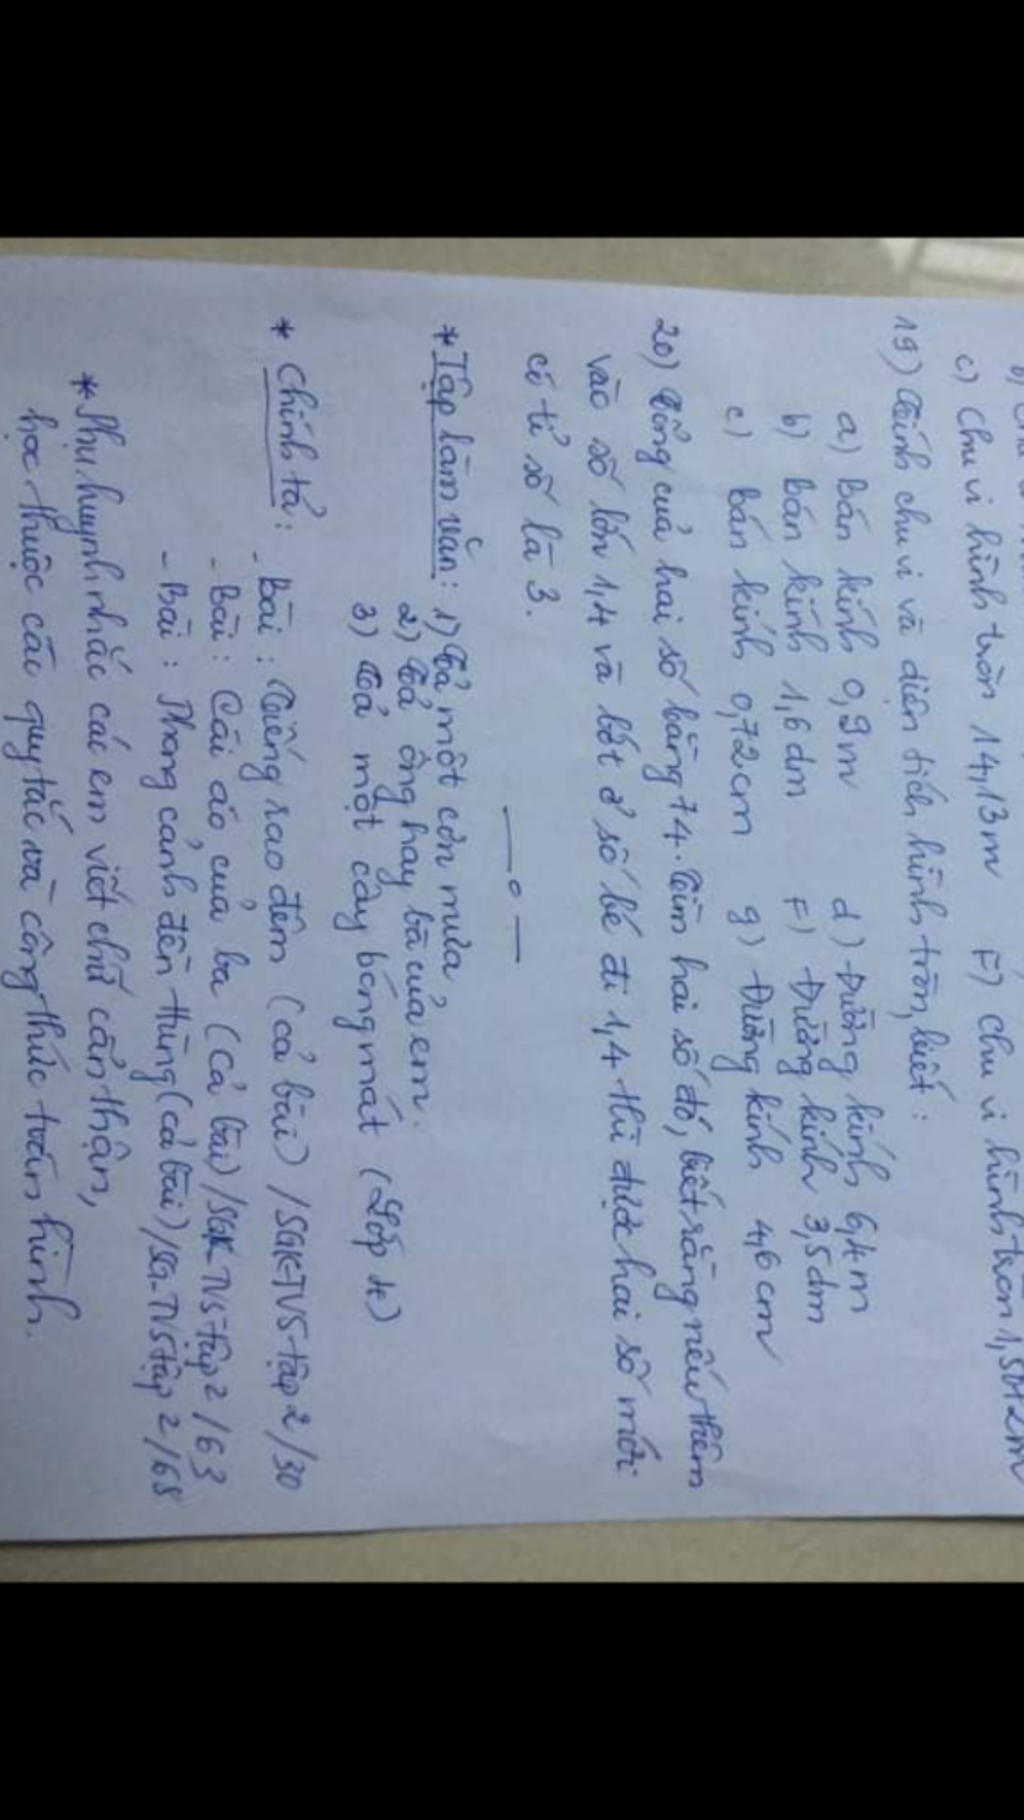 c) Chu vi hình tròn 14,13m F) Chu vi hình tròn
19) Tính chu vi và diện tích hình tròn, biết:
a) Bán kính 0,9m d) Đường kính 6,4m
b) Bán kính 1,6dm F) Đường kính 3,5dm
c) Bán kính 0,72cm g) Đường kính 4,6cm
20) Tổng của hai số bằng 74. Tìm hai số đó, biết rằng nếu thêm
vào số lớn 1,4 và bớt ở số bé đi 1,4 thì được hai số mới
có tỉ số là 3.
*Tập làm văn: 1) Tả một cơn mưa
2) Tả ông hay bà của em.
3) Tả một cây bóng mát (Lớp 4)
* Chính tả: - Bài: Tiếng rao đêm (cả bài) /SGKTV5-tập 2/30
- Bài: Cái áo của ba (cả bài) /SGK TV5-tập 2/63
- Bài: Phong cảnh đền Hùng (cả bài) / TV5 tập 2/68
* Phụ huynh nhắc các em viết chữ cẩn thận,
học thuộc các quy tắc và công thức toán hình.